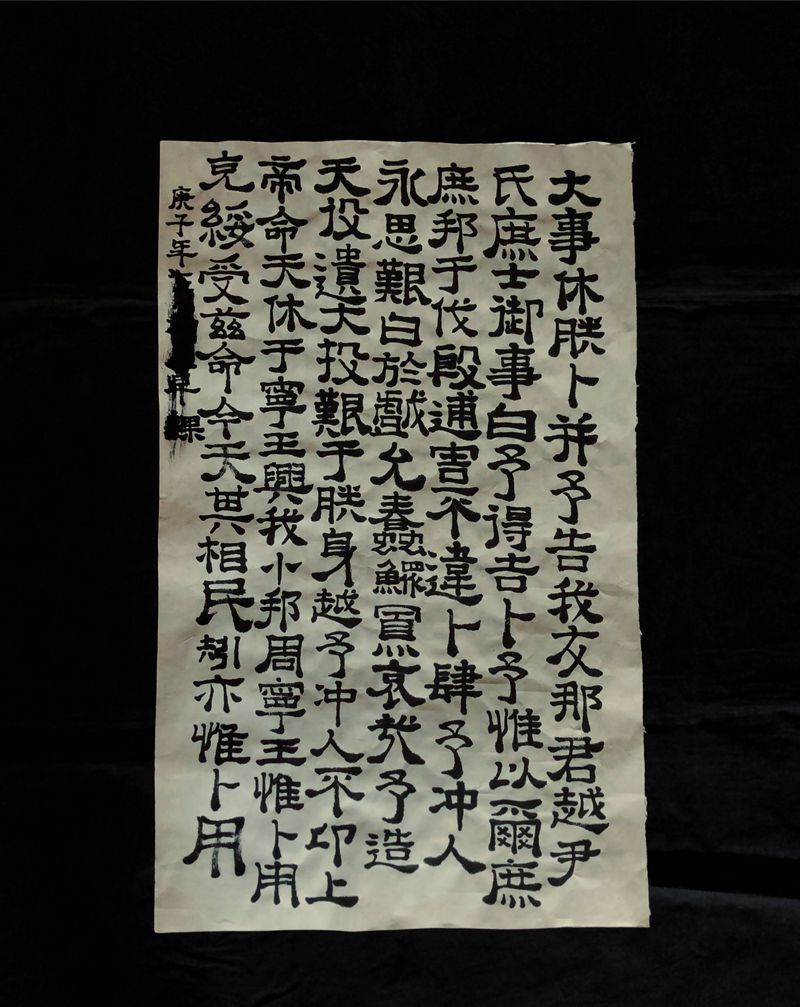 大事休朕卜并予告我友邦君越尹
氏庶士御事曰予得吉卜予惟以爾庶
庶邦于伐殷逋害不違卜肆予冲人
永思艱曰於戲允蠢鰥寡哀哉予造
天役遺大投艱于朕身越予冲人不卬上
帝命天休于寧王興我小邦周寧王惟卜用
克綏受茲命今天其相民矧亦惟卜用
庚子年
課